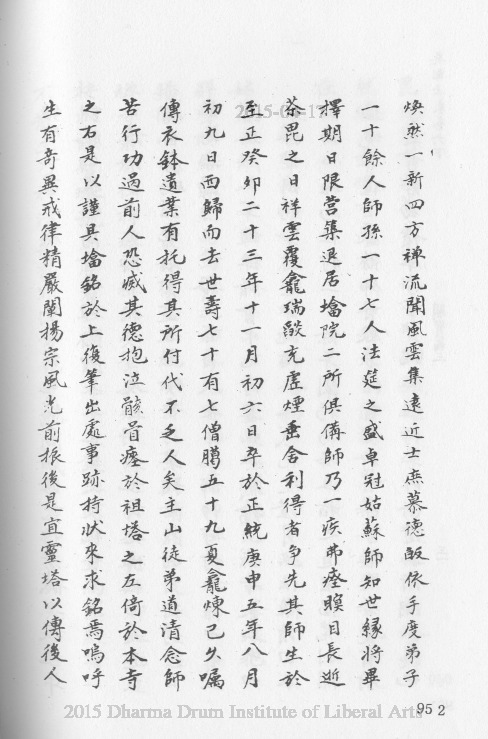 煥然一新四方禅流聞風雲集遠近士庶慕德皈依手度弟子
一十餘人師孫一十七人法筵之盛卓冠姑蘇師知世緣將畢
擇期日限营集退居墖院二所俱備師乃一疾弗瘥瞑目長逝
荼毘之日祥雲覆龕瑞燄充虗煙垂舍利得者争先其師生於
至正癸夘二十三年十一月初六日卒於正統庚申五年八月
初九日西歸而去世壽七十有七僧臈五十九夏龕煉已久嘱
傳衣鉢遺葉有托得其所付代不乏人矣主山徒弟道清念師
苦行功過前人恐滅其德抱泣骸骨瘞於祖塔之左倚於本寺
之右是以謹具墖銘於上復筆出處事跡持狀來求銘焉嗚呼
生有奇異戒律精嚴闡揚宗風光前振後是宜靈塔以傳後人
2015-03-17
2015 Dharma Drum Institute of Liberal Arts
952